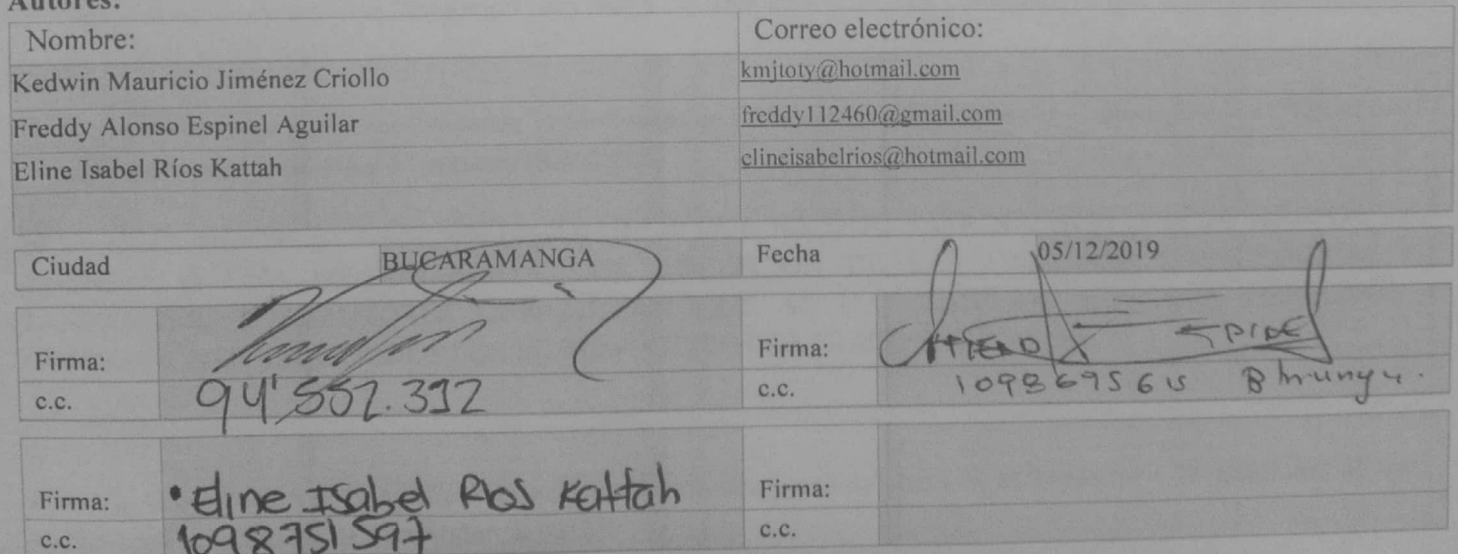 Autores:
Nombre: Correo electrónico:
Kedwin Mauricio Jiménez Criollo kmjtoty@hotmail.com
Freddy Alonso Espinel Aguilar freddy112460@gmail.com
Eline Isabel Ríos Kattah elineisabelrios@hotmail.com
Ciudad BUCARAMANGA Fecha 05/12/2019
Firma: Firma:
c.c. c.c.
Firma: Eline Isabel Rios Kattah Firma:
c.c. 1098751597 c.c.